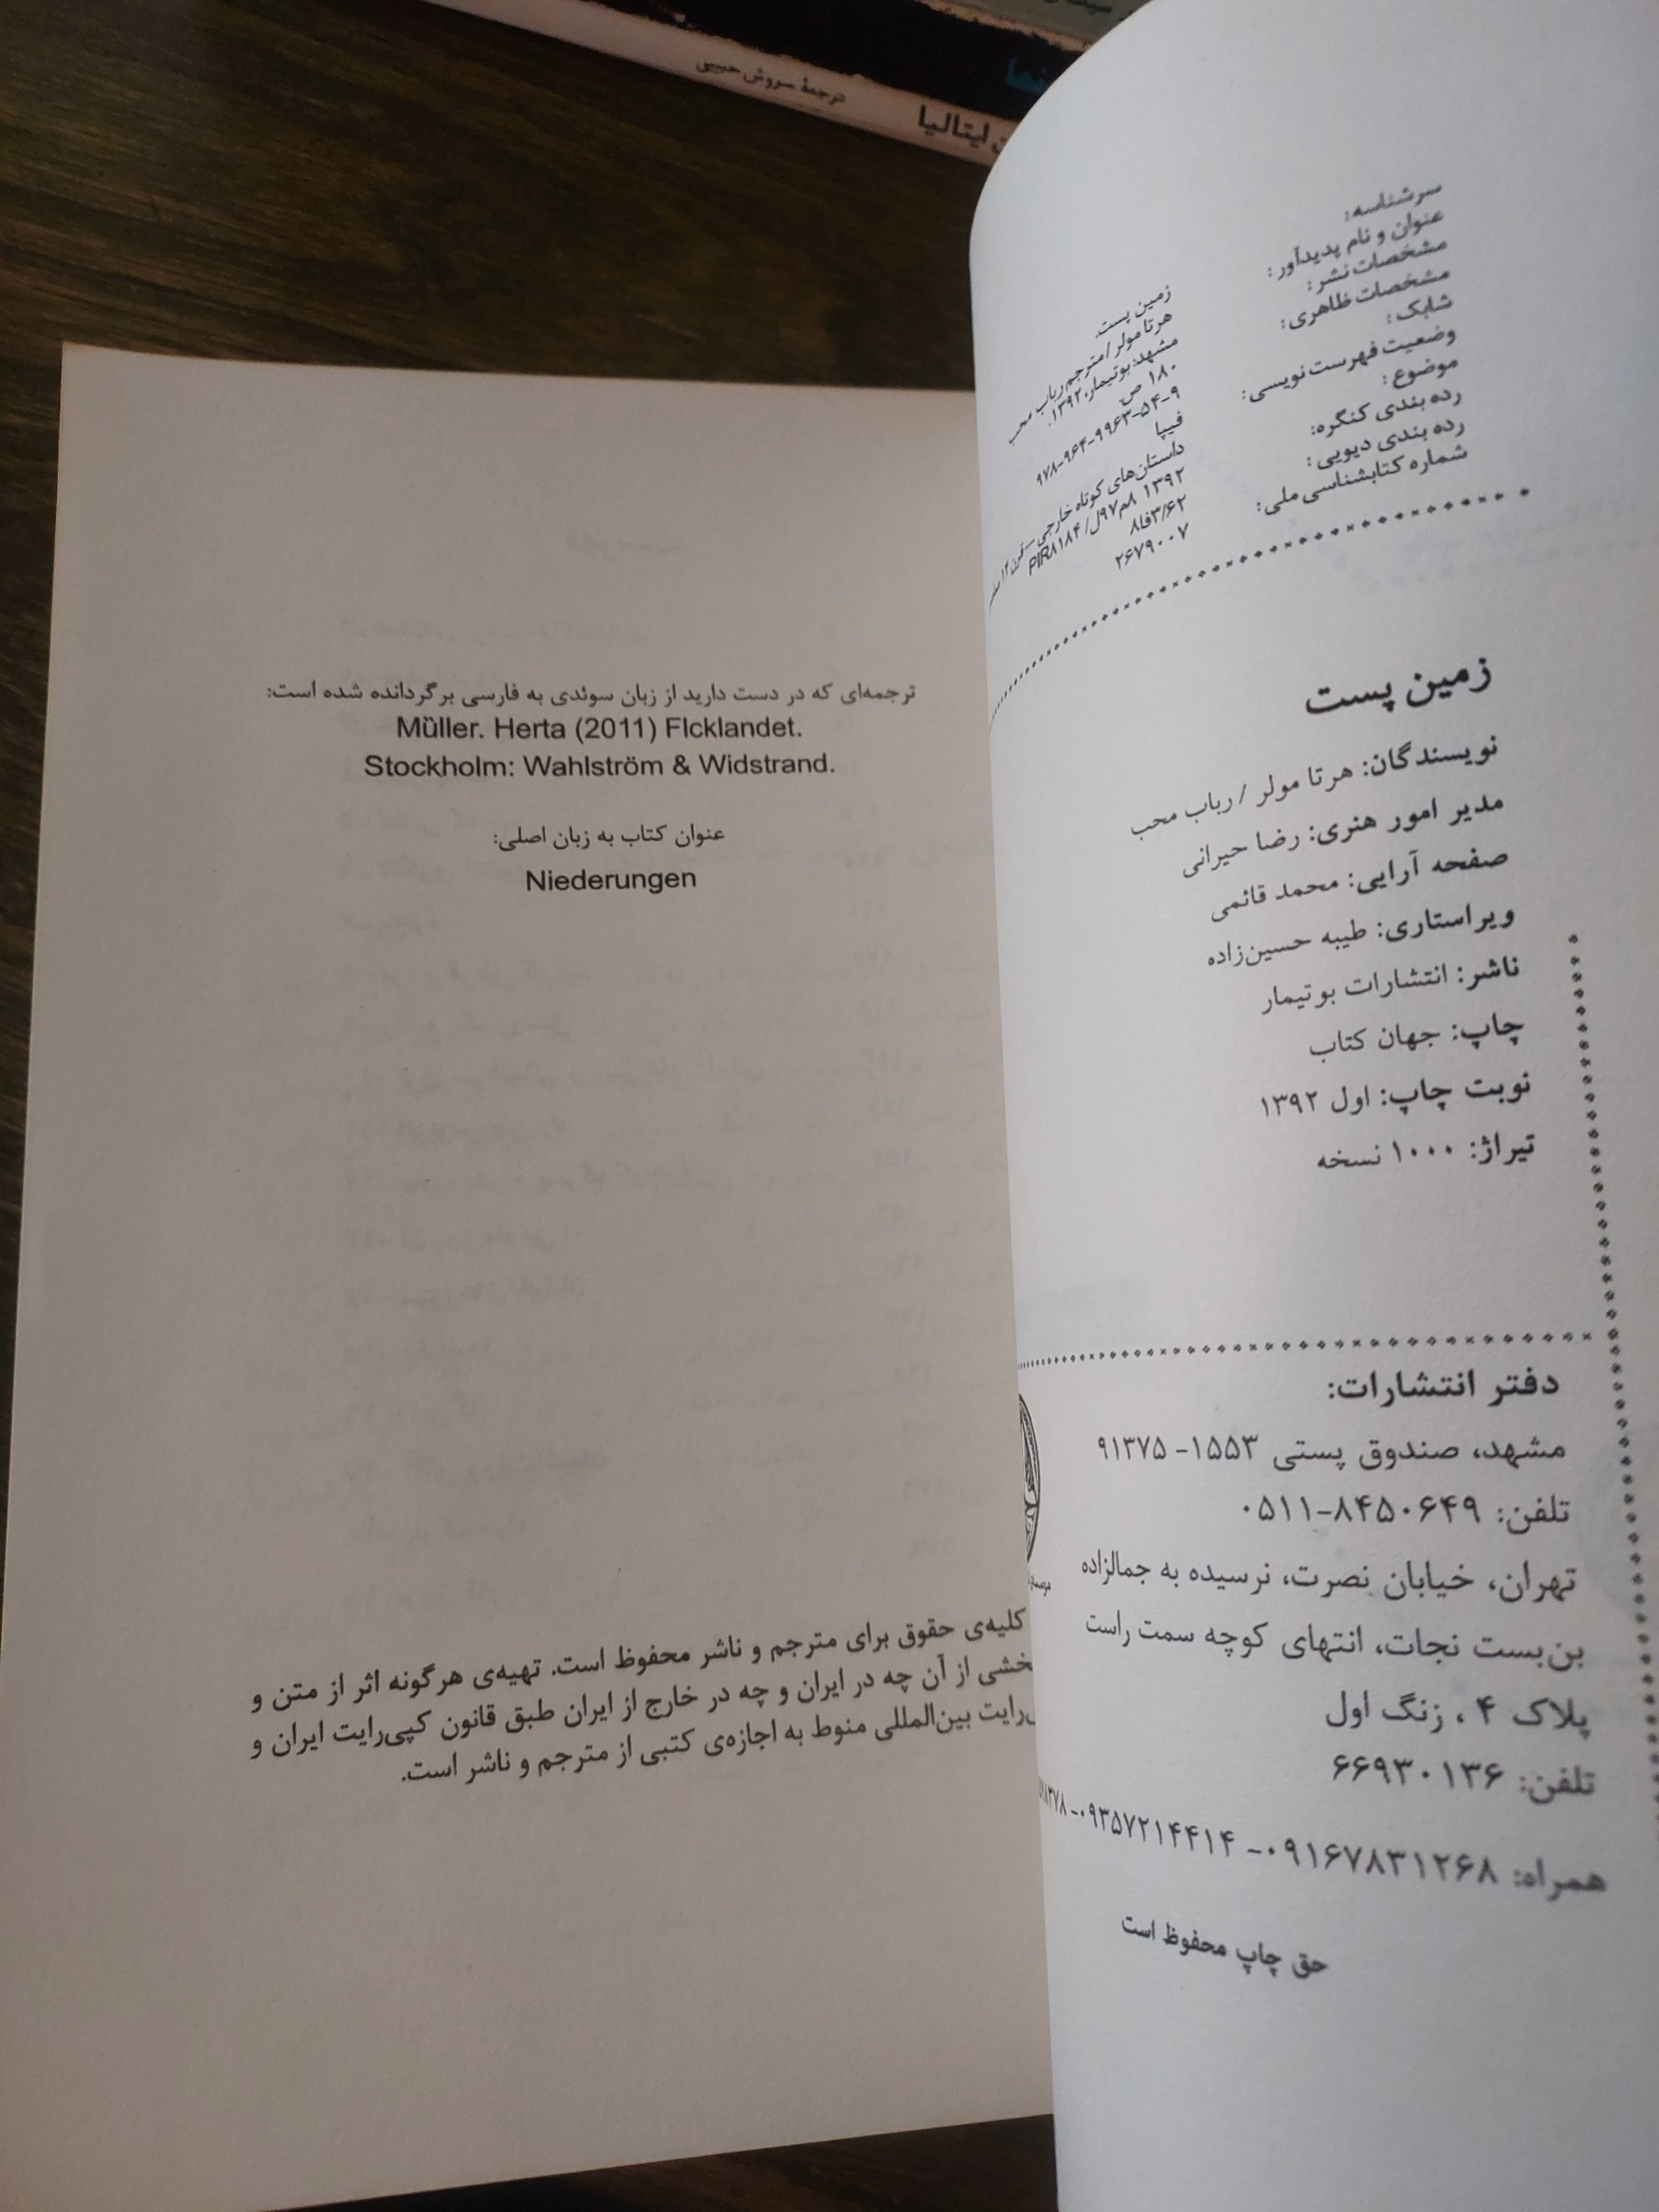 ترجمهٔ سروش حبیبی
ایتالیا
سرشناسه:
عنوان و نام پدیدآور: زمین پست
هرتا مولر / مترجم رباب محب
مشخصات نشر: مشهد: بوتیمار، ۱۳۹۲.
مشخصات ظاهری: ۱۸۰ ص.
شابک: ۹۷۸-۹۶۴-۹۹۶۳-۵۴-۹
وضعیت فهرست نویسی: فیپا
موضوع: داستان‌های کوتاه خارجی – قرن ۱۴
رده بندی کنگره: ۱۳۹۲ ۸م۹۷ل/ PIR۸۱۸۴
رده بندی دیویی: ۸فا۳/۶۲
شماره کتابشناسی ملی: ۲۶۷۹۰۰۷
زمین پست
نویسندگان: هرتا مولر / رباب محب
مدیر امور هنری: رضا حیرانی
صفحه آرایی: محمد قائمی
ویراستاری: طیبه حسین‌زاده
ناشر: انتشارات بوتیمار
چاپ: جهان کتاب
نوبت چاپ: اول ۱۳۹۲
تیراژ: ۱۰۰۰ نسخه
دفتر انتشارات:
مشهد، صندوق پستی ۱۵۵۳- ۹۱۳۷۵
تلفن: ۸۴۵۰۶۴۹-۰۵۱۱
تهران، خیابان نصرت، نرسیده به جمالزاده
بن‌بست نجات، انتهای کوچه سمت راست
پلاک ۴ ، زنگ اول
تلفن: ۶۶۹۳۰۱۳۶
همراه: ۰۹۱۶۷۸۳۱۲۶۸- ۰۹۳۵۷۲۱۴۴۱۴-
حق چاپ محفوظ است
ترجمه‌ای که در دست دارید از زبان سوئدی به فارسی برگردانده شده است:
Müller. Herta (2011) Flcklandet.
Stockholm: Wahlström & Widstrand.
عنوان کتاب به زبان اصلی:
Niederungen
کلیه‌ی حقوق برای مترجم و ناشر محفوظ است. تهیه‌ی هرگونه اثر از متن و
بخشی از آن چه در ایران و چه در خارج از ایران طبق قانون کپی‌رایت ایران و
کپی‌رایت بین‌المللی منوط به اجازه‌ی کتبی از مترجم و ناشر است.